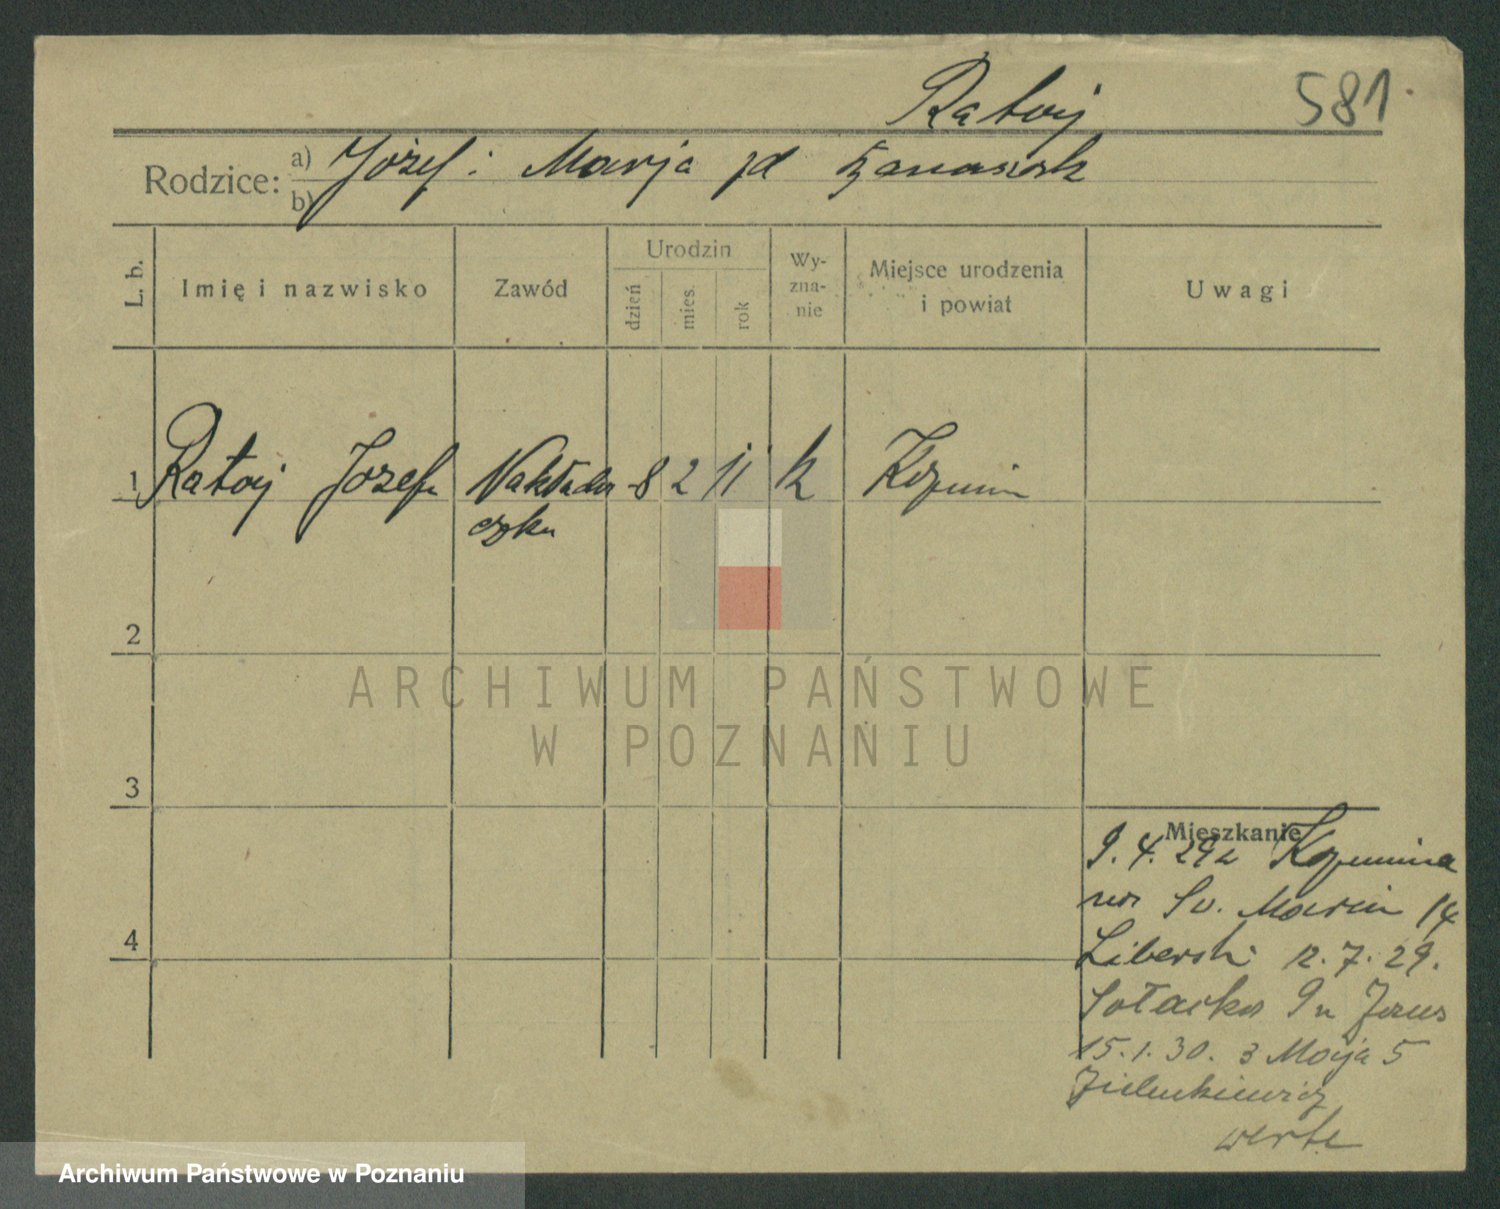 Ratoij
581
Rodzice: a) Józef i Marja zd
b)
L. b.
Imię i nazwisko
Zawód
Urodzin
dzień
mies.
rok
Wy-
zna-
nie
Miejsce urodzenia
i powiat
Uwagi
1 Ratoij Józef 8 2 11 k Kozmin
2
3
4
Mieszkanie
9. 4. 29 z Kozmina
na Św. Marcin 14
Liberski 12. 7. 29.
Sołacka 9
15. 1. 30. 3 Maja 5
verte
ARCHIWUM PAŃSTWOWE
W POZNANIU
Archiwum Państwowe w Poznaniu